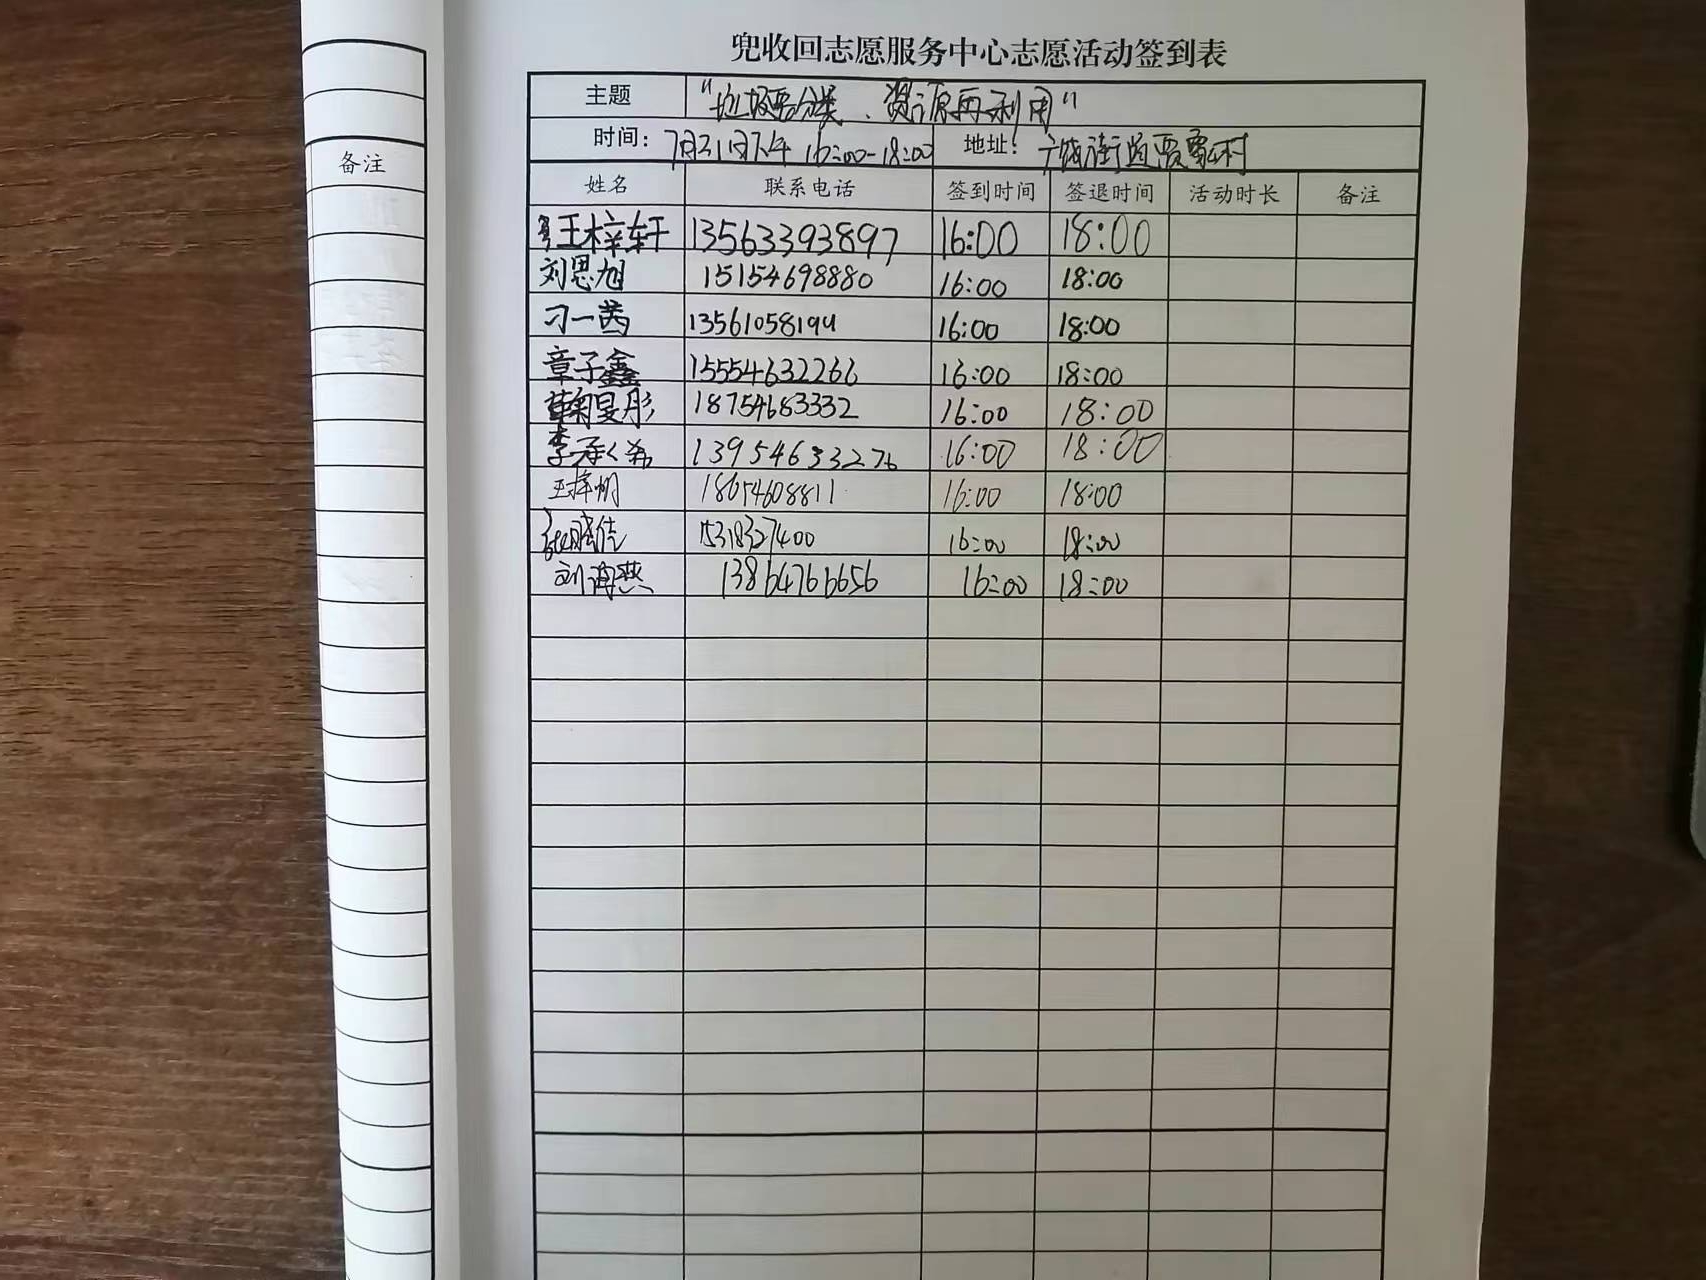 兜收回志愿服务中心志愿活动签到表
主题 "垃圾分类、资源再利用"
时间: 7月21日下午 16:00-18:00 地址: 街道 村
备注
姓名 联系电话 签到时间 签退时间 活动时长 备注
王梓轩 13563393897 16:00 18:00
刘思旭 15154698880 16:00 18:00
刁一茜 13561058194 16:00 18:00
章子鑫 15554632266 16:00 18:00
韩旻彤 18754683332 16:00 18:00
李承希 13954633276 16:00 18:00
王梓明 18654608811 16:00 18:00
16:00 18:00
刘海燕 13864766656 16:00 18:00